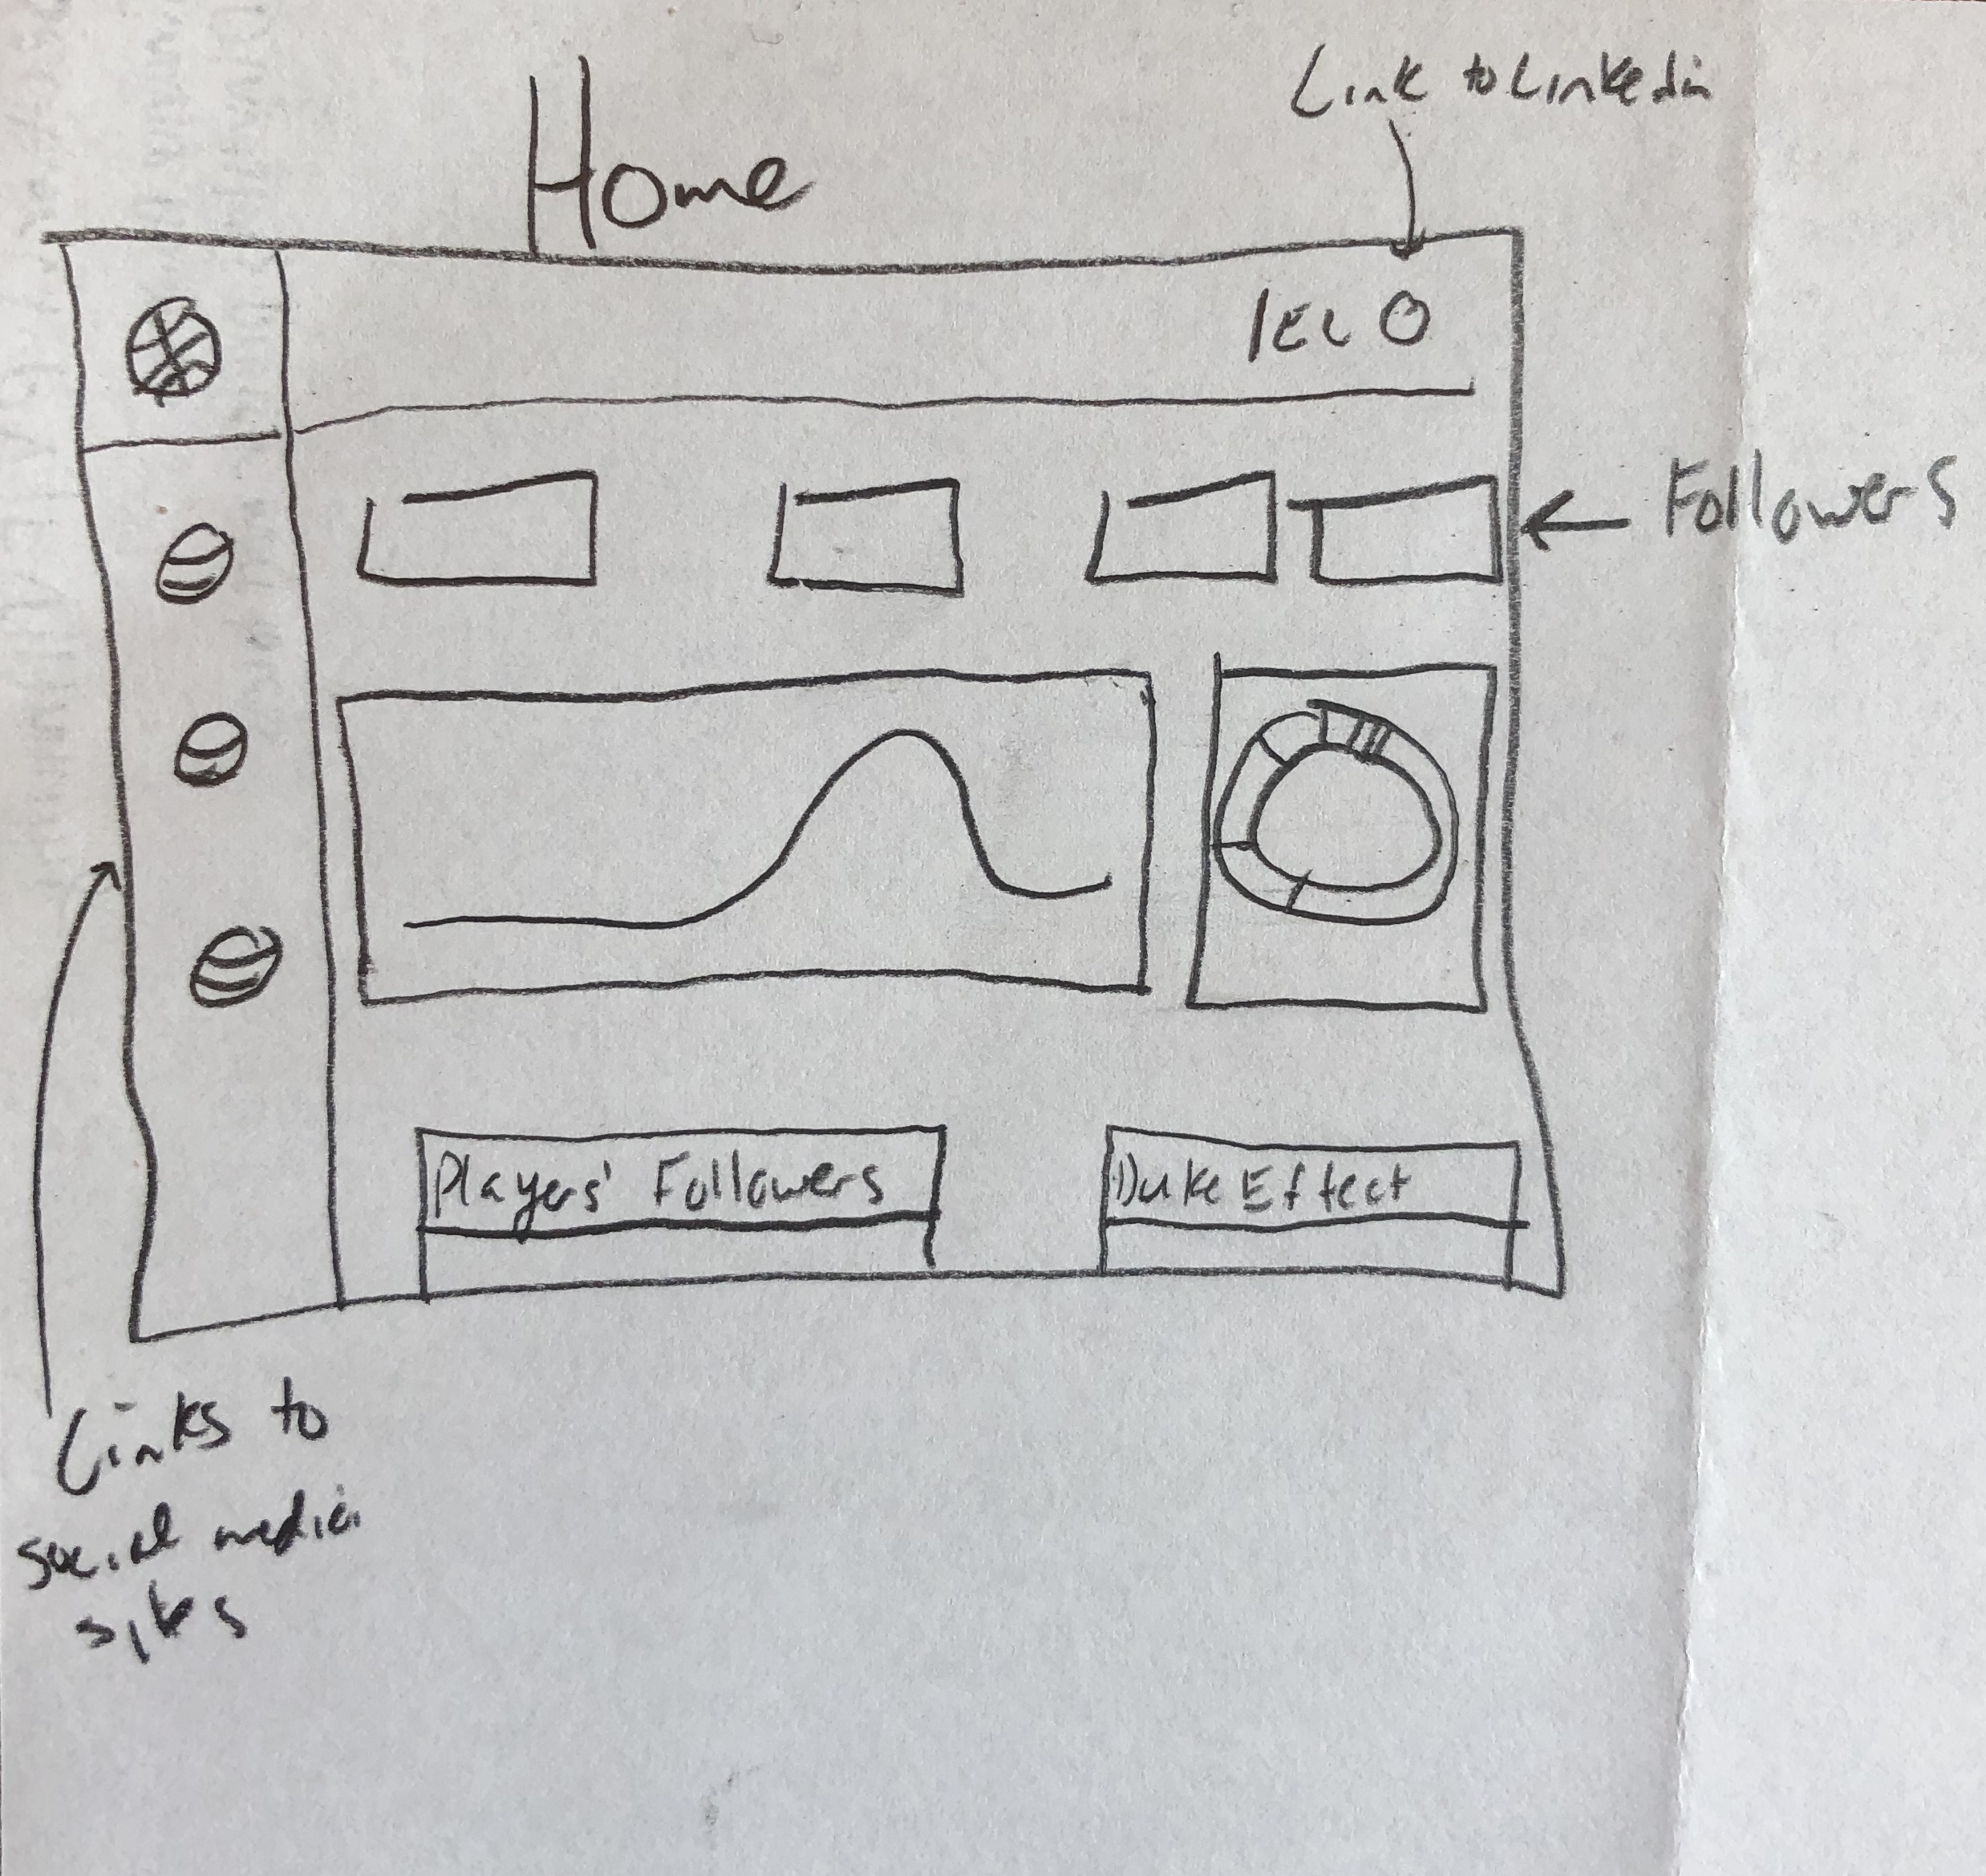 Link to Linkedin
Home
Followers
Players' Followers
Duke Effect
Links to
social media
sites